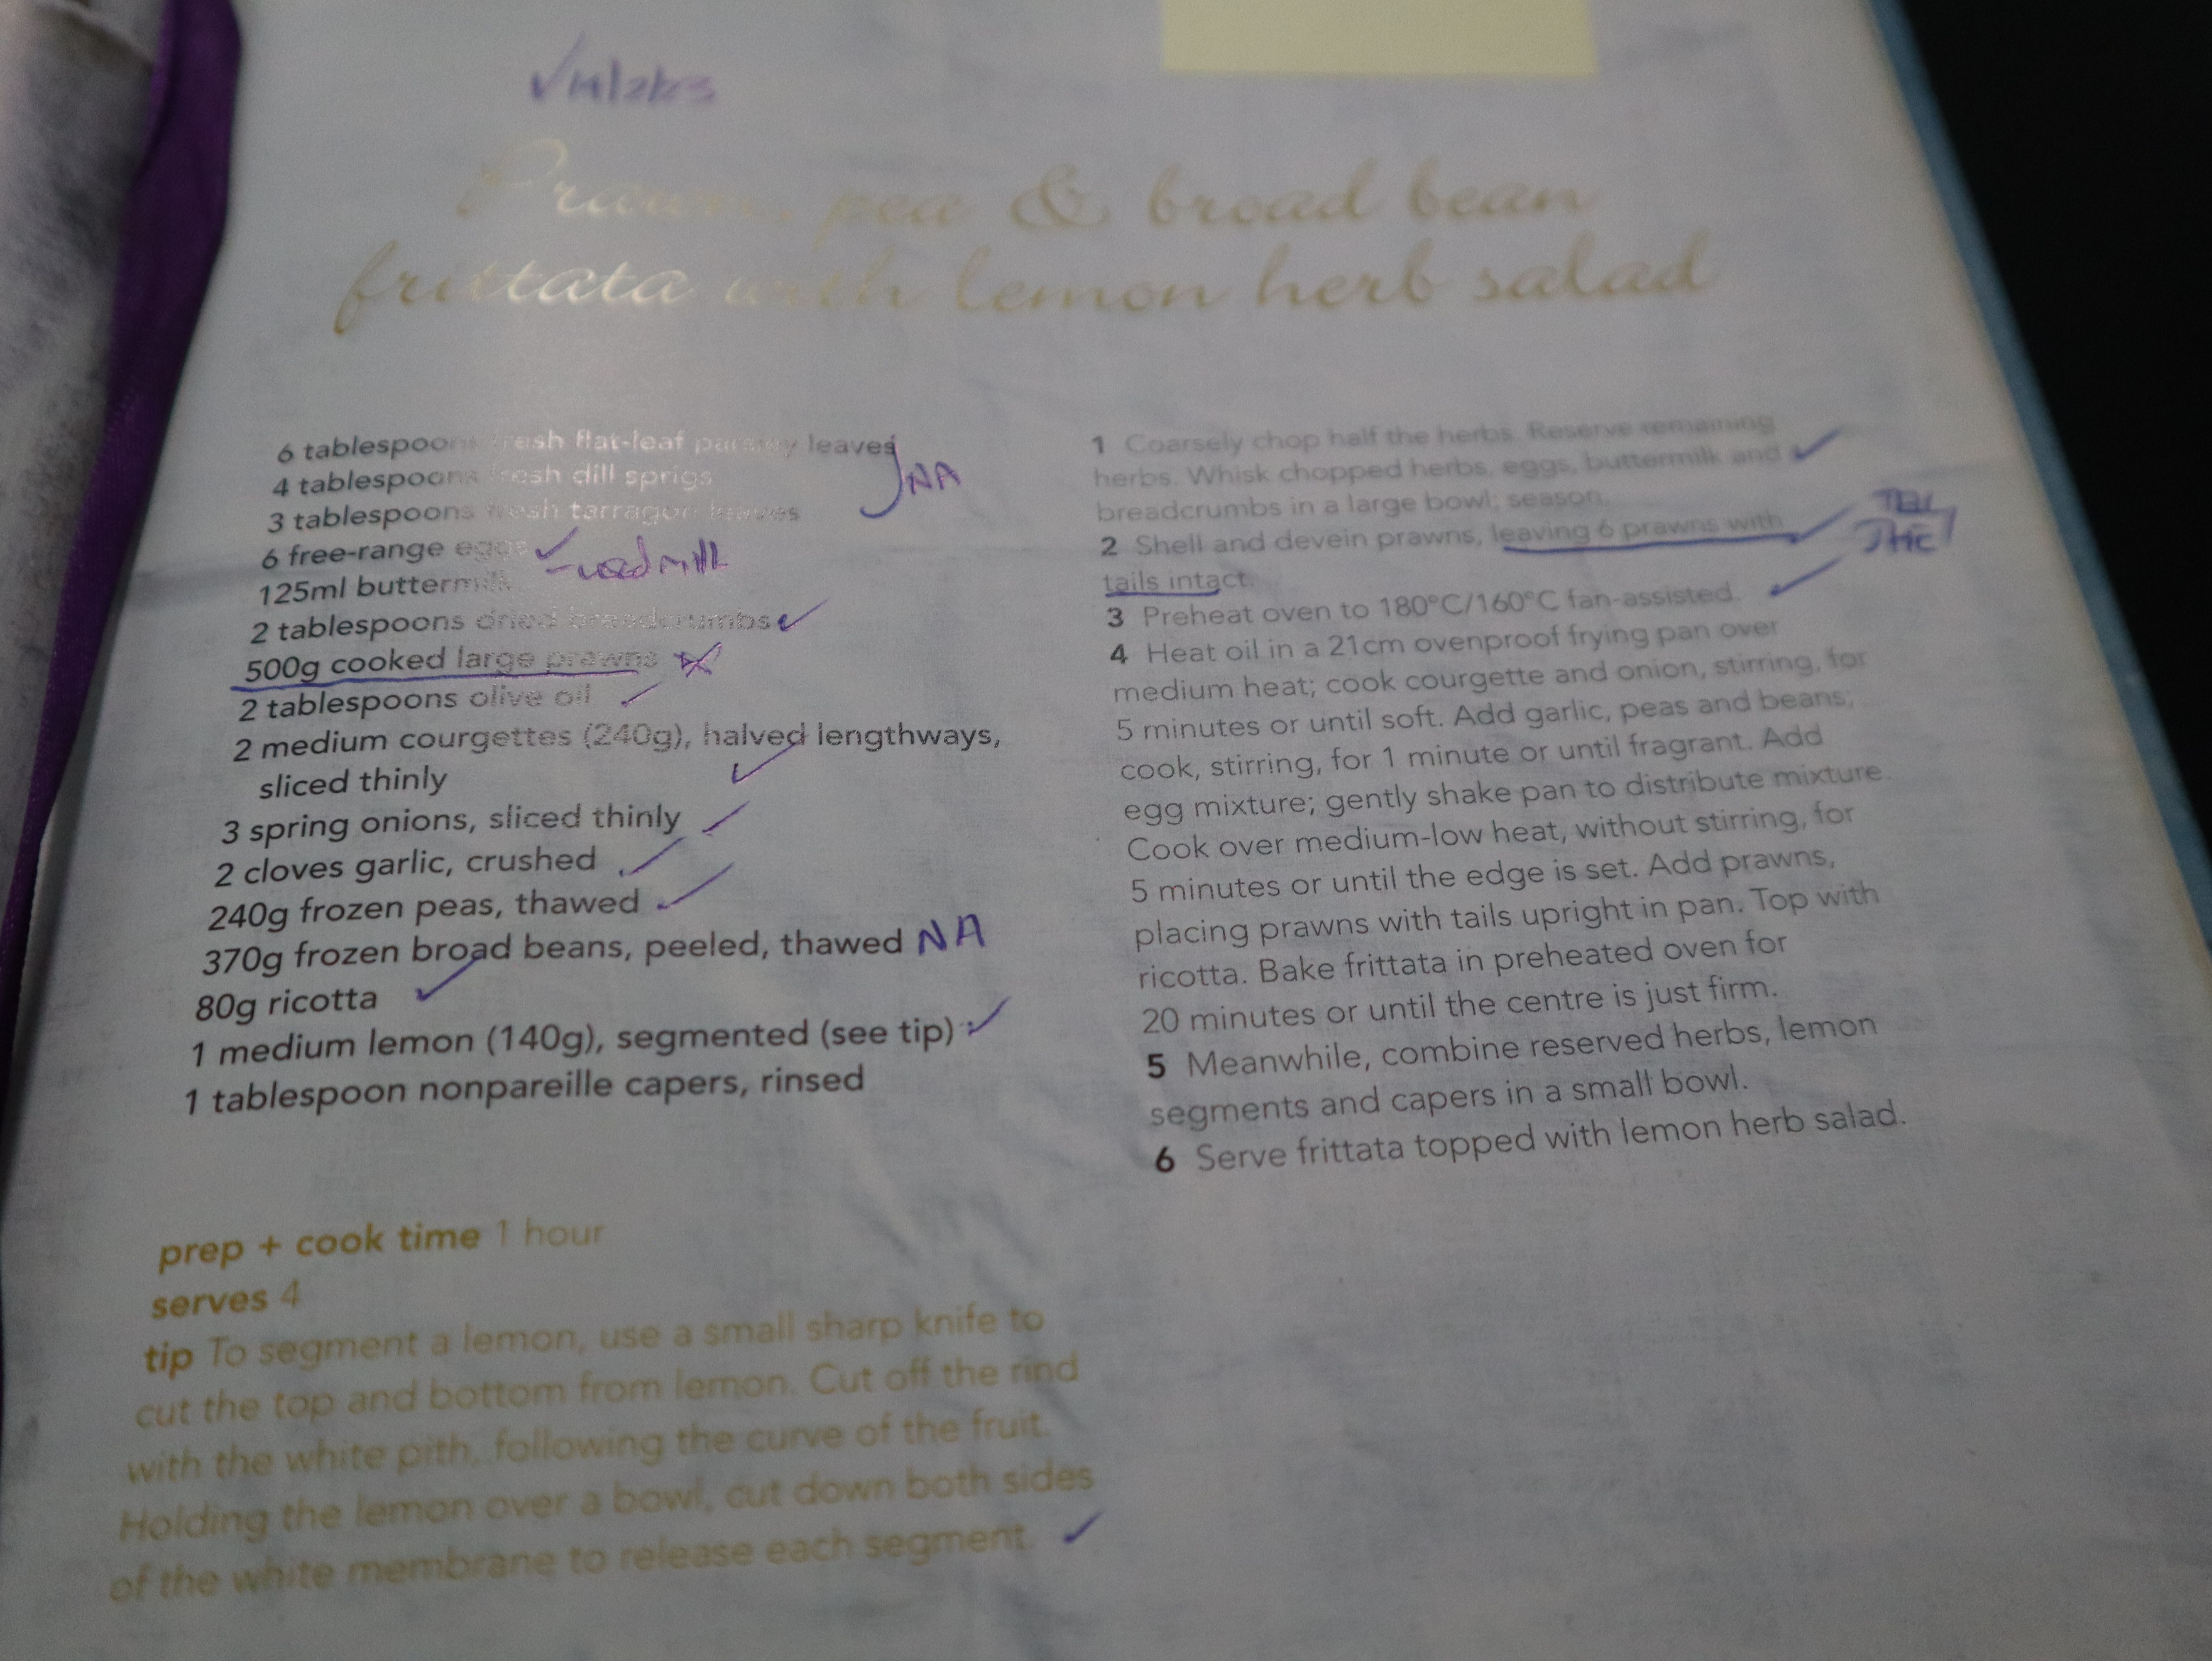 Prawn, pea & broad bean
frittata with lemon herb salad
6 tablespoons fresh flat-leaf parsley leaves
4 tablespoons fresh dill sprigs
NA
3 tablespoons fresh tarragon leaves
6 free-range eggs ✓
125ml buttermilk - used milk
2 tablespoons dried breadcrumbs ✓
500g cooked large prawns
2 tablespoons olive oil ✓
2 medium courgettes (240g), halved lengthways,
sliced thinly ✓
3 spring onions, sliced thinly ✓
2 cloves garlic, crushed ✓
240g frozen peas, thawed ✓
370g frozen broad beans, peeled, thawed NA
80g ricotta ✓
1 medium lemon (140g), segmented (see tip) ✓
1 tablespoon nonpareille capers, rinsed
prep + cook time 1 hour
serves 4
tip To segment a lemon, use a small sharp knife to
cut the top and bottom from lemon. Cut off the rind
with the white pith, following the curve of the fruit.
Holding the lemon over a bowl, cut down both sides
of the white membrane to release each segment. ✓
1 Coarsely chop half the herbs. Reserve remaining
herbs. Whisk chopped herbs, eggs, buttermilk and ✓
breadcrumbs in a large bowl; season.
2 Shell and devein prawns, leaving 6 prawns with ✓
tails intact.
3 Preheat oven to 180°C/160°C fan-assisted. ✓
4 Heat oil in a 21cm ovenproof frying pan over
medium heat; cook courgette and onion, stirring, for
5 minutes or until soft. Add garlic, peas and beans;
cook, stirring, for 1 minute or until fragrant. Add
egg mixture; gently shake pan to distribute mixture.
Cook over medium-low heat, without stirring, for
5 minutes or until the edge is set. Add prawns,
placing prawns with tails upright in pan. Top with
ricotta. Bake frittata in preheated oven for
20 minutes or until the centre is just firm.
5 Meanwhile, combine reserved herbs, lemon
segments and capers in a small bowl.
6 Serve frittata topped with lemon herb salad.